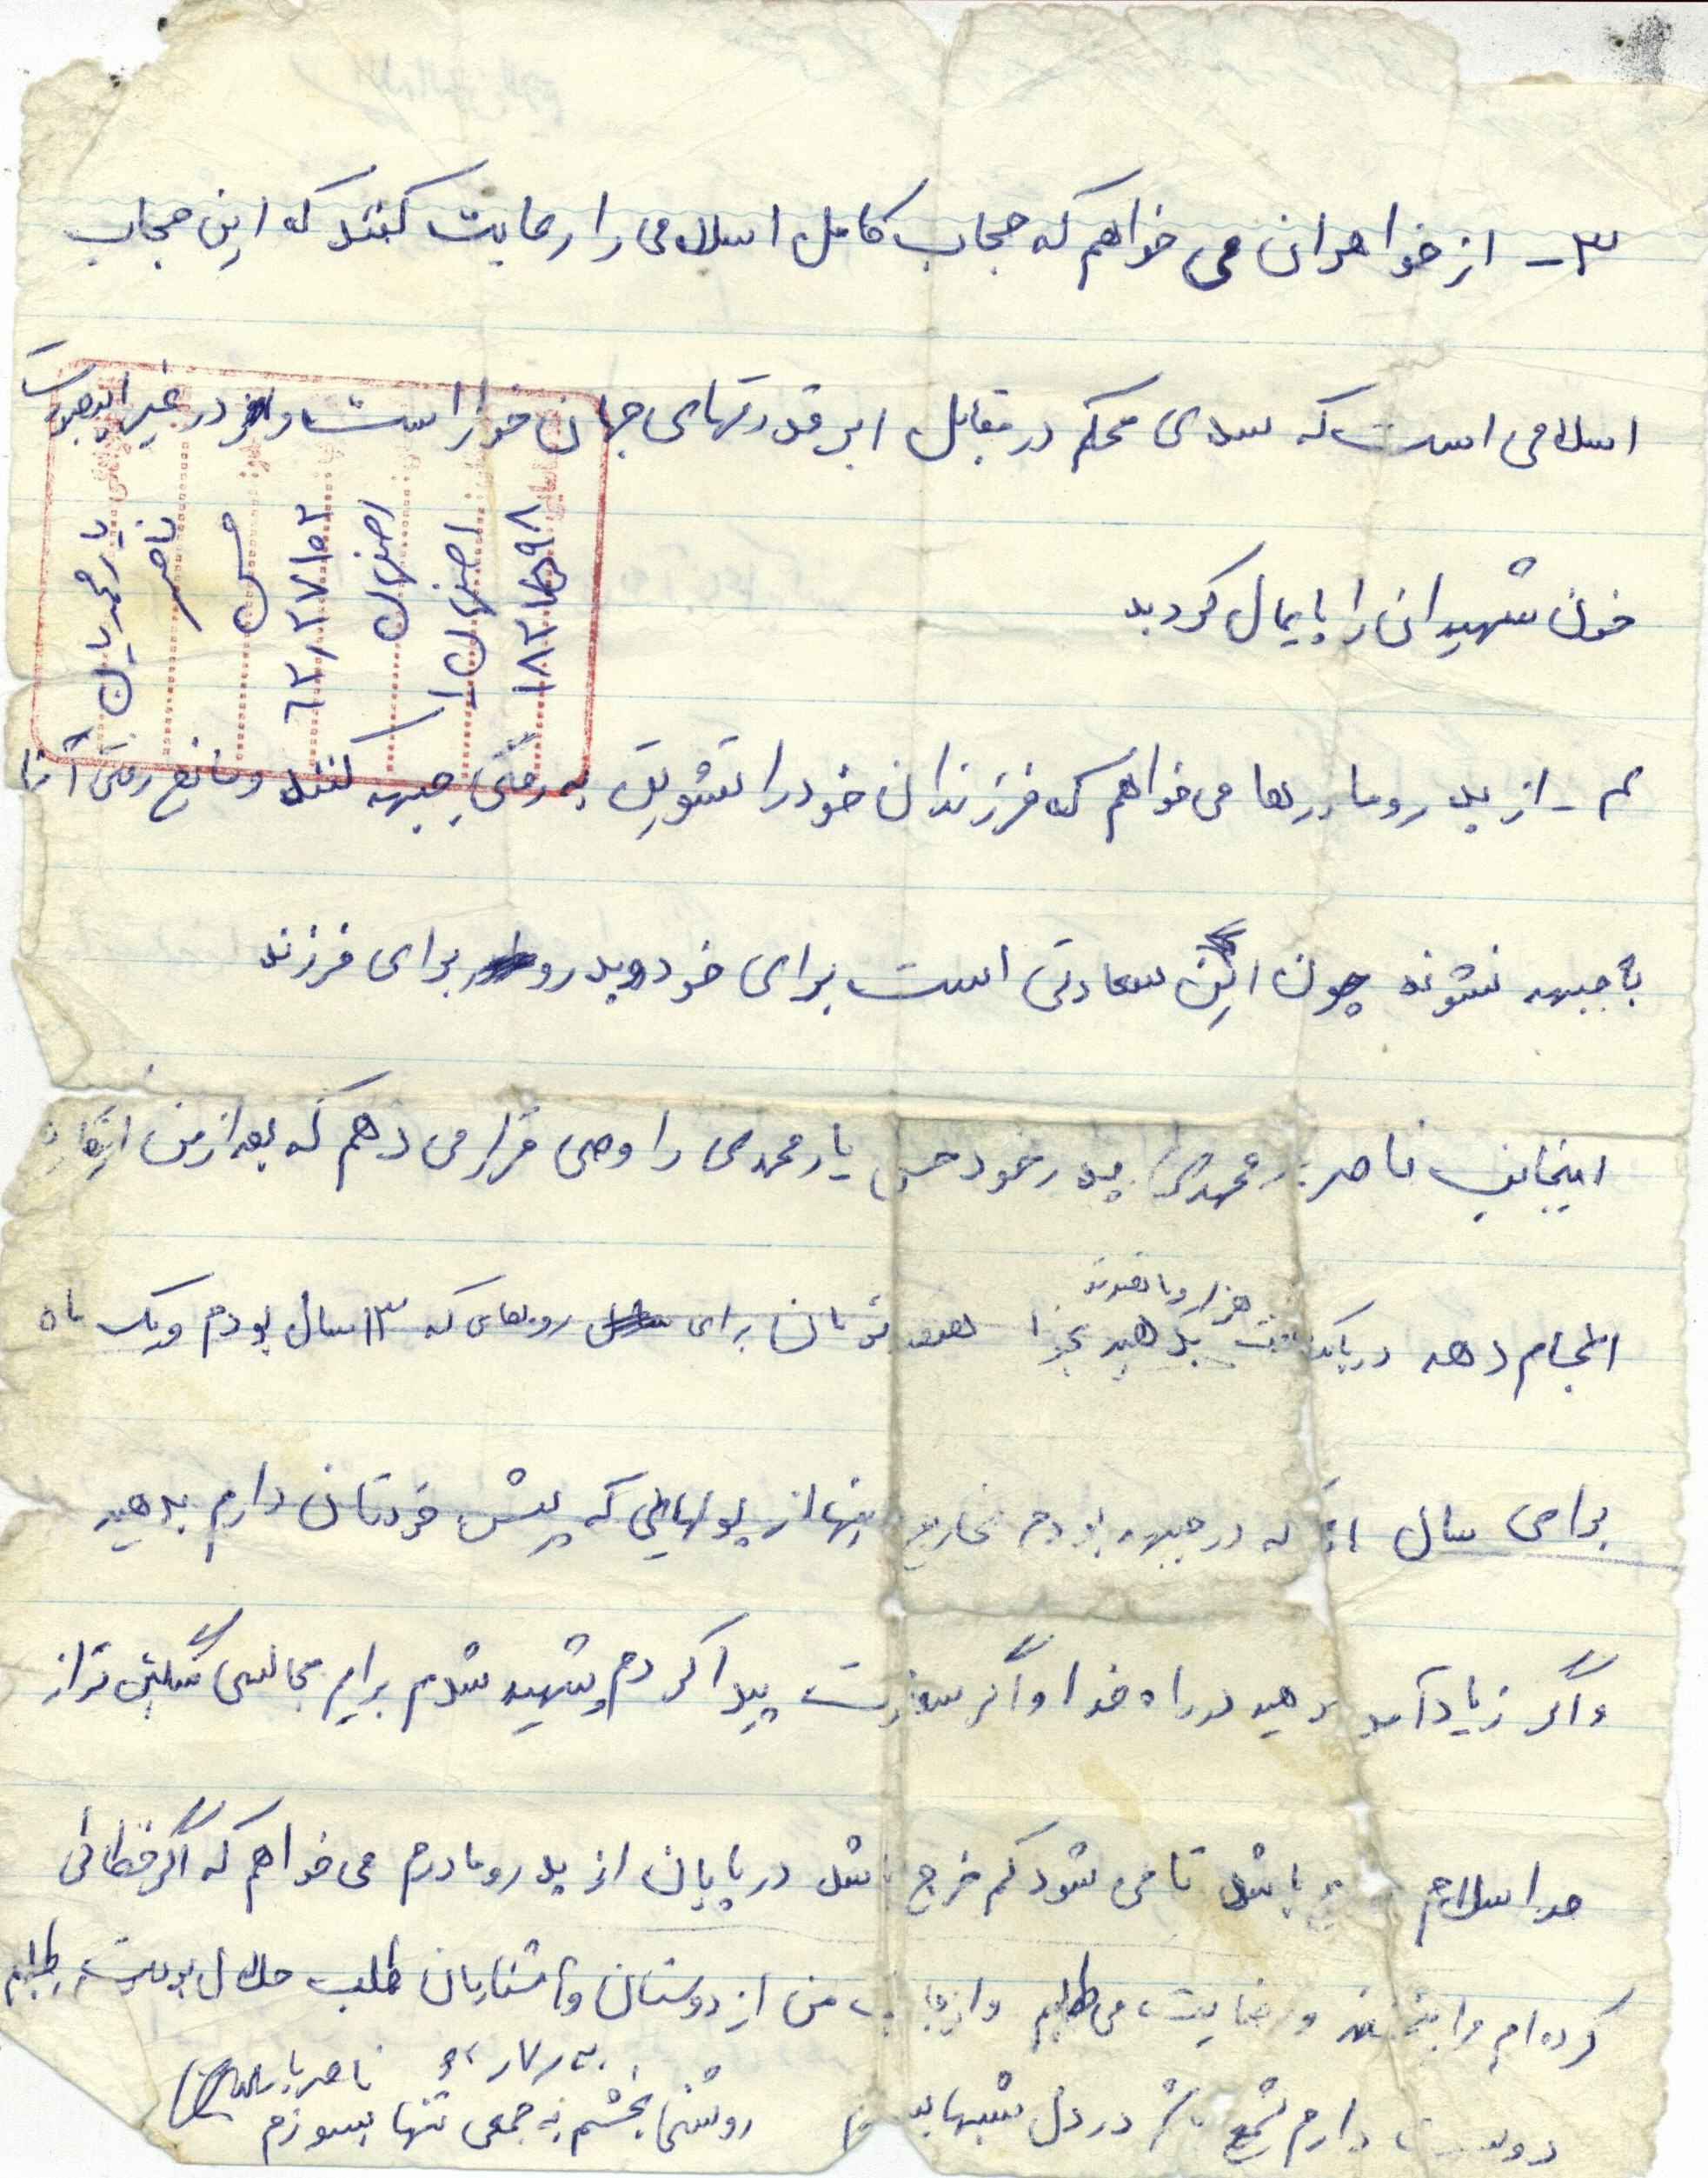 ۳- از خواهران می خواهم که حجاب کامل اسلامی را رعایت کنند که این حجاب
اسلامی است که سدی محکم در مقابل ابرقدرتهای جهان خوار است و در غیر اینصورت
خون شهیدان را پایمال کردید
۴- از پدر و مادرها می خواهم که فرزندان خود را تشویق به رفتن جبهه کنند و مانع رفتن آنها
به جبهه نشوند چون این سعادتی است برای خود پدر و برای فرزند
اینجانب ناصر یارمحمدی پدر خود حسن یارمحمدی را وصی قرار می دهم که بعد از من
انجام دهد در بانک بدهید
هزار و پانصد
تومان برای روزهای که ۱۳ سال بودم و یک ماه
برای سال که در جبهه بودم مخارج اینها از پولهایی که پیش خودتان دارم بدهید
و اگر زیاد آمد بدهید در راه خدا و اگر سعادت پیدا کردم و شهید شدم برایم مجالسی سنگین تر از
صدر اسلام باشد تا می شود کم خرج باشد در پایان از پدر و مادرم می خواهم که اگر خطائی
کرده ام مرا ببخشند و رضایت می طلبم و از من از دوستان و آشنایان طلب حلال بودیت
دوست دارم شمع باشم در دل شبها روشنی بخشم به جمعی تنها بسوزم
ناصر یارمحمدی
یارمحمدیان
ناصر
۶۲/۳۷۱۵۲
اصفهان
اصفهان ۱